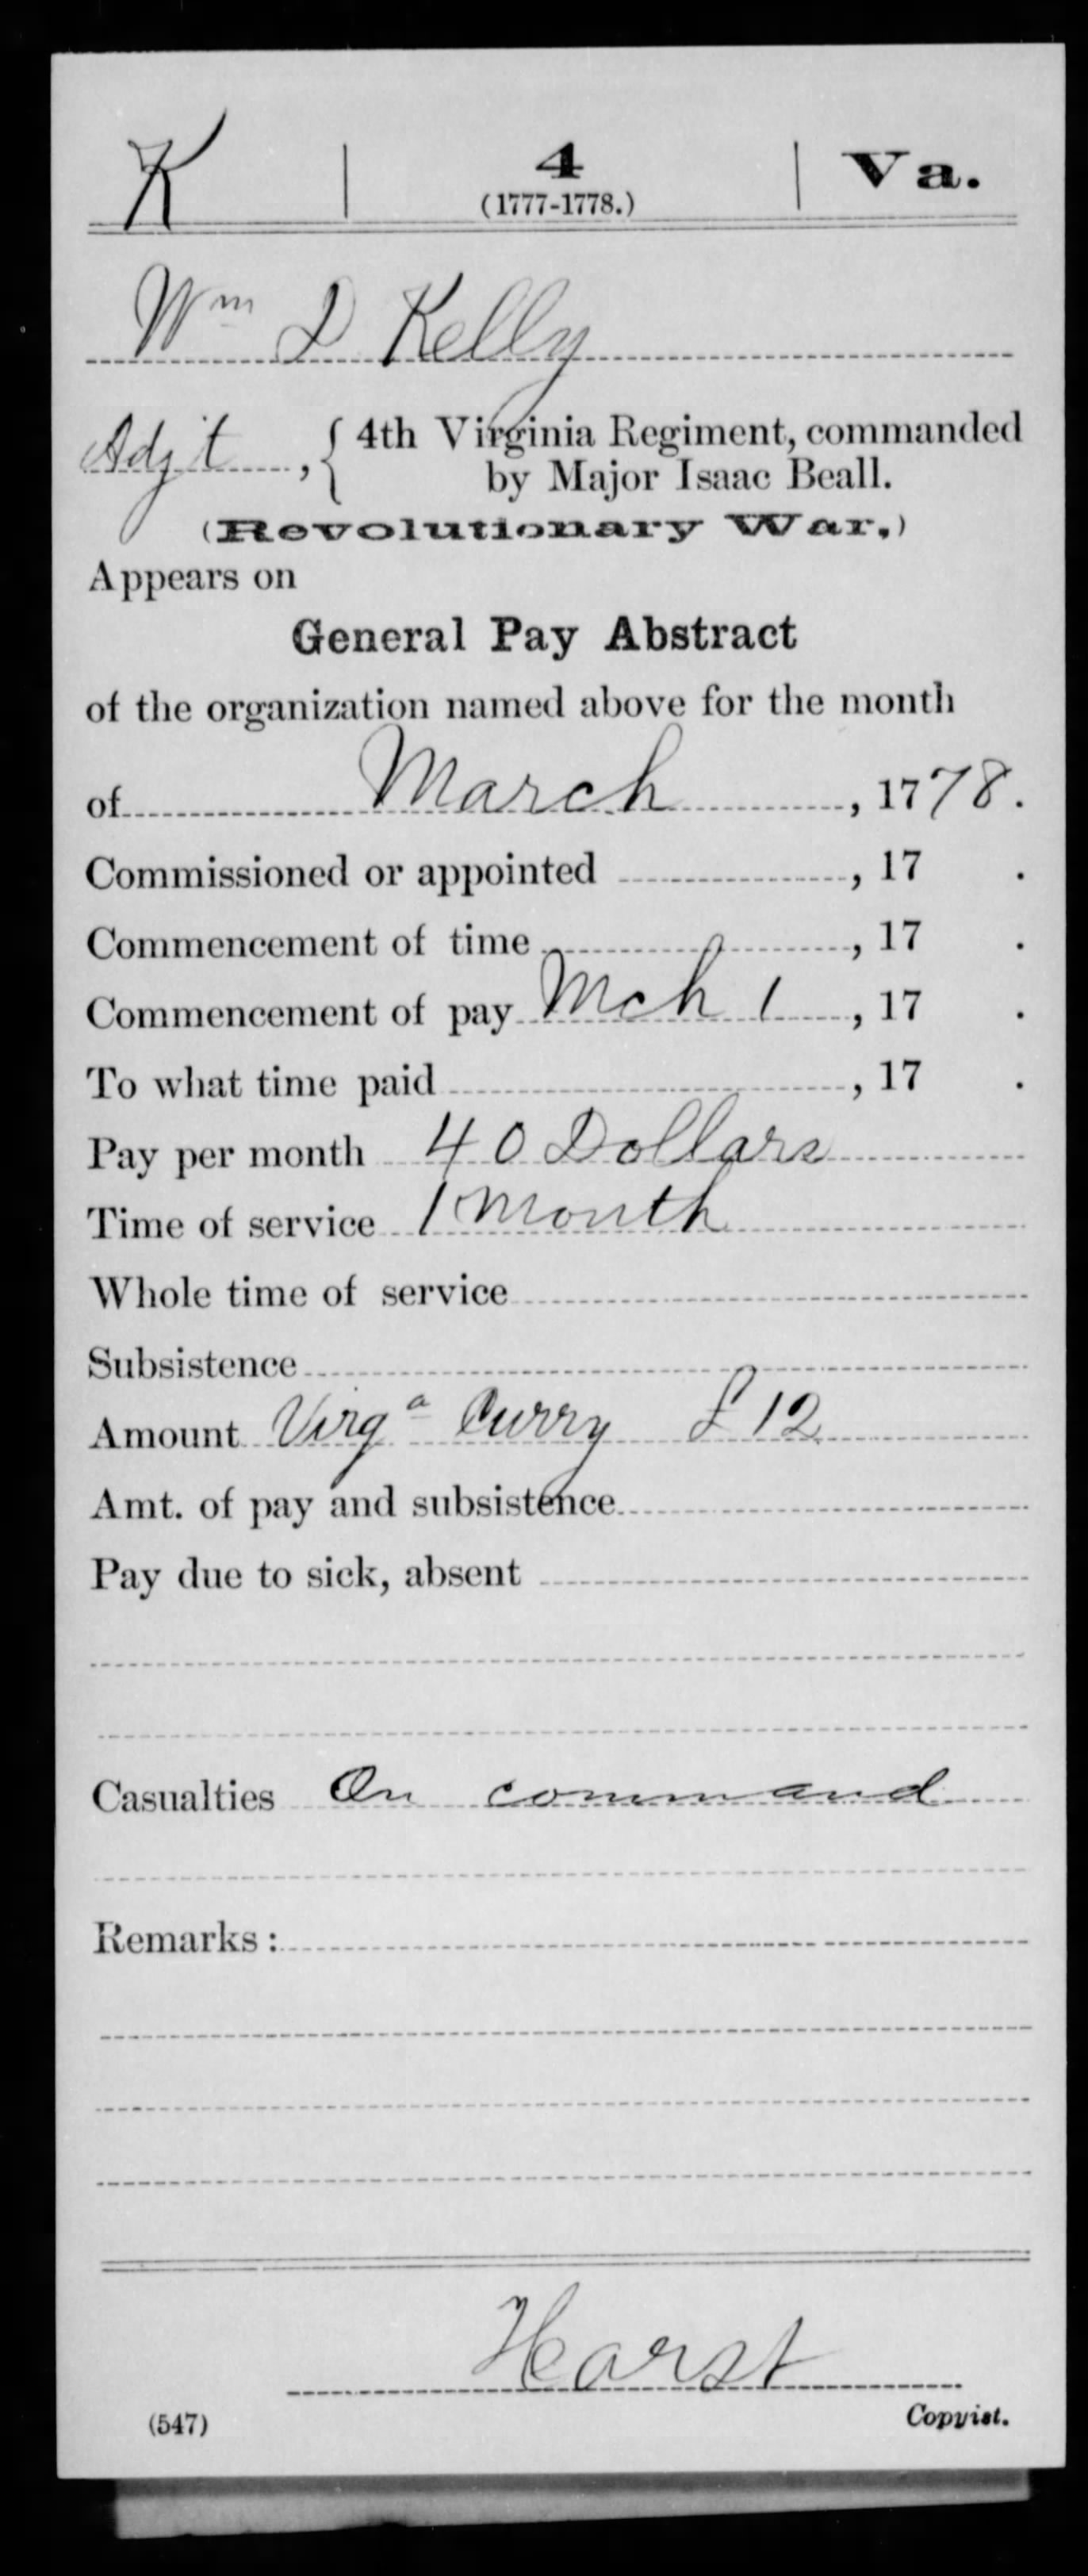 K | 4 | Va.
(1777-1778.)
Wm D Kelly
Adjt, { 4th Virginia Regiment, commanded
by Major Isaac Beall.
(Revolutionary War.)
Appears on
General Pay Abstract
of the organization named above for the month
of March, 1778.
Commissioned or appointed , 17 .
Commencement of time , 17 .
Commencement of pay Mch 1, 17 .
To what time paid , 17 .
Pay per month 40 Dollars
Time of service 1 Month
Whole time of service
Subsistence
Amount Virga Curry £12
Amt. of pay and subsistence
Pay due to sick, absent
Casualties On command
Remarks:
Harst
(547) Copyist.